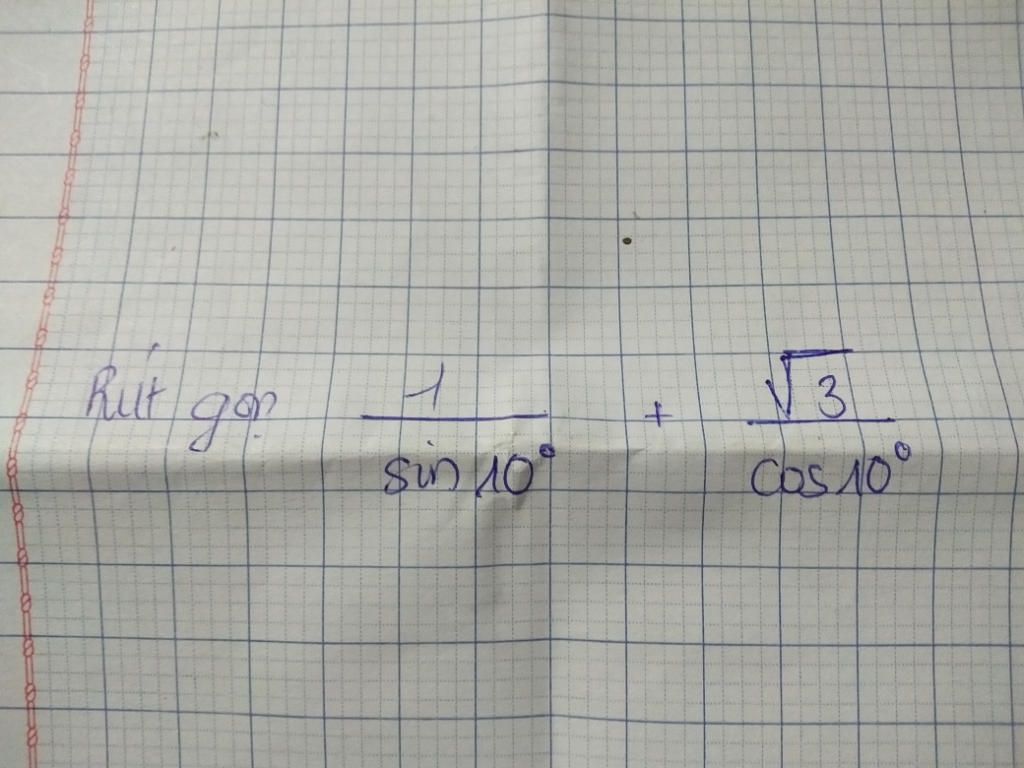 Rút gọn $\frac{1}{\sin 10^\circ} + \frac{\sqrt{3}}{\cos 10^\circ}$